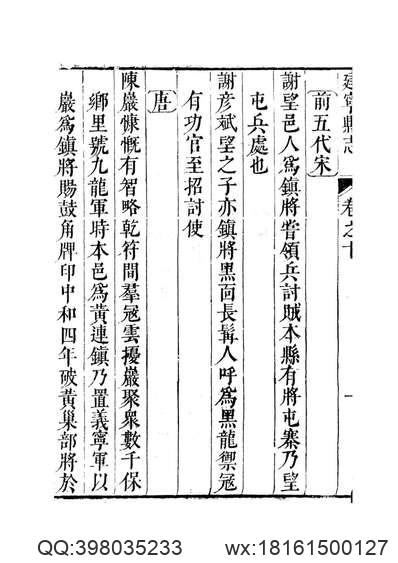 建寧縣志 卷之十
前五代宋
謝望邑人爲鎮將嘗領兵討賊本縣有將屯寨乃望
屯兵處也
謝彦斌望之子亦鎮將黑面長髯人呼爲黑龍禦冦
有功官至招討使
唐
陳巖慷慨有智略乾符間羣冦雲擾巖聚衆數千保
鄉里號九龍軍時本邑爲黃連鎮乃置義寧軍以
巖爲鎮將賜鼓角牌印中和四年破黃巢部將於
QQ:398035233 wx:18161500127